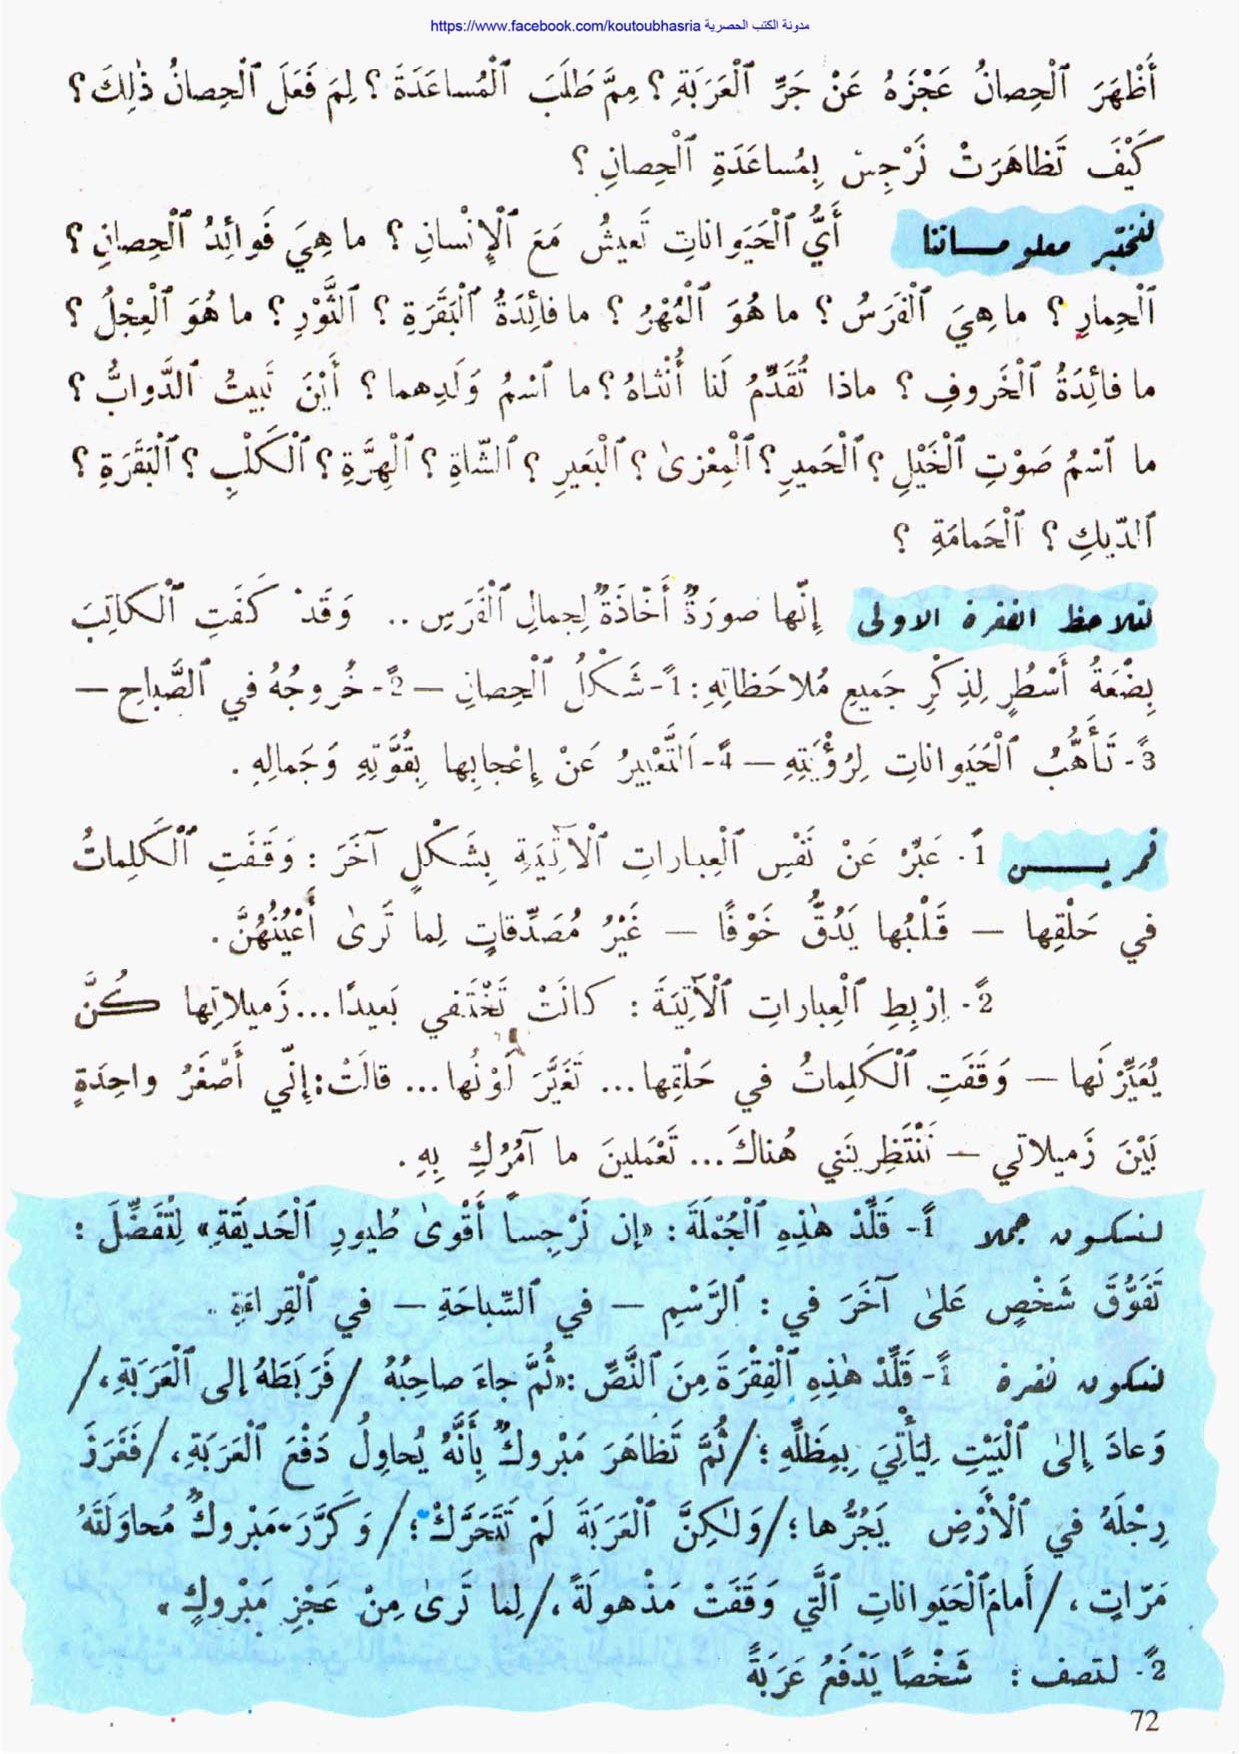 مدونة الكتب الحصرية https://www.facebook.com/koutoubhasria
أَظْهَرَ ٱلْحِصانُ عَجْزَهُ عَنْ جَرِّ ٱلْعَرَبَةِ؟ مِمَّ طَلَبَ ٱلْمُساعَدَةَ؟ لِمَ فَعَلَ ٱلْحِصانُ ذٰلِكَ؟
كَيْفَ تَظاهَرَتْ نَرْجِسُ بِمُساعَدَةِ ٱلْحِصانِ؟
لنختبر معلوماتنا أَيُّ ٱلْحَيَواناتِ تَعيشُ مَعَ ٱلْإِنْسانِ؟ ما هِيَ فَوائِدُ ٱلْحِصانِ؟
ٱلْحِمارِ؟ ما هِيَ ٱلْفَرَسُ؟ ما هُوَ ٱلْمُهْرُ؟ ما فائِدَةُ ٱلْبَقَرَةِ؟ ٱلثَّوْرِ؟ ما هُوَ ٱلْعِجْلُ؟
ما فائِدَةُ ٱلْخَروفِ؟ ماذا تُقَدِّمُ لَنا أُنْثاهُ؟ ما ٱسْمُ وَلَدِهِما؟ أَيْنَ تَبيتُ ٱلدَّوابُّ؟
ما ٱسْمُ صَوْتِ ٱلْخَيْلِ؟ ٱلْحَميرِ؟ ٱلْمِعْزىٰ؟ ٱلْبَعيرِ؟ ٱلشّاةِ؟ ٱلْهِرَّةِ؟ ٱلْكَلْبِ؟ ٱلْبَقَرَةِ؟
ٱلدّيكِ؟ ٱلْحَمامَةِ؟
لنلاحظ الفقرة الاولى إِنّها صورَةٌ أَخّاذَةٌ لِجمالِ ٱلْفَرَسِ.. وَقَدْ كَفَتِ ٱلْكاتِبَ
بِضْعَةُ أَسْطُرٍ لِذِكْرِ جَميعِ مُلاحَظاتِهِ: 1ً- شَكْلُ ٱلْحِصانِ — 2ً- خُروجُهُ في ٱلصَّباحِ —
3ً- تَأَهُّبُ ٱلْحَيَواناتِ لِرُؤْيَتِهِ — 4ً- اَلتَّعْبيرُ عَنْ إِعْجابِها بِقُوَّتِهِ وَجَمالِهِ.
تمريـــن 1ً- عَبِّرْ عَنْ نَفْسِ ٱلْعِباراتِ ٱلْآتِيَةِ بِشَكْلٍ آخَرَ: وَقَفَتِ ٱلْكَلِماتُ
في حَلْقِها — قَلْبُها يَدُقُّ خَوْفًا — غَيْرُ مُصَدِّقاتٍ لِما تَرىٰ أَعْيُنُهُنَّ.
2ً- اِرْبِطِ ٱلْعِباراتِ ٱلْآتِيَةَ: كانَتْ تَخْتَفي بَعيدًا... زَميلاتِها كُنَّ
يُعَيِّرْنَها — وَقَفَتِ ٱلْكَلِماتُ في حَلْقِها... تَغَيَّرَ لَوْنُها... قالَتْ: إِنّي أَصْغَرُ واحِدَةٍ
بَيْنَ زَميلاتي — تَنْتَظِرينَني هُناكَ... تَعْمَلينَ ما آمُرُكِ بِهِ.
لنكون جملا 1ً- قَلِّدْ هٰذِهِ ٱلْجُمْلَةَ: «إن نَرْجِساً أَقْوىٰ طُيورِ ٱلْحَديقَةِ» لِتُفَضِّلَ:
تَفَوُّقَ شَخْصٍ عَلىٰ آخَرَ في: ٱلرَّسْمِ — في ٱلسِّباحَةِ — في ٱلْقِراءَةِ..
لنكون فقرة 1ً- قَلِّدْ هٰذِهِ ٱلْفِقْرَةَ مِنَ ٱلنَّصِّ: «ثُمَّ جاءَ صاحِبُهُ / فَرَبَطَهُ إِلى ٱلْعَرَبَةِ، /
وَعادَ إِلىٰ ٱلْبَيْتِ لِيَأْتِيَ بِمِظَلِّهِ؛ / ثُمَّ تَظاهَرَ مَبْروكٌ بِأَنَّهُ يُحاوِلُ دَفْعَ ٱلْعَرَبَةِ، / فَغَرَزَ
رِجْلَهُ في ٱلْأَرْضِ يَجُرُّها؛ / وَلٰكِنَّ ٱلْعَرَبَةَ لَمْ تَتَحَرَّكْ؛ / وَكَرَّرَ مَبْروكٌ مُحاوَلَتَهُ
مَرّاتٍ، / أَمامَ ٱلْحَيَواناتِ ٱلَّتي وَقَفَتْ مَذْهولَةً، / لِما تَرىٰ مِنْ عَجْزِ مَبْروكٍ.
2ً- لتصف: شَخْصًا يَدْفَعُ عَرَبَةً
72